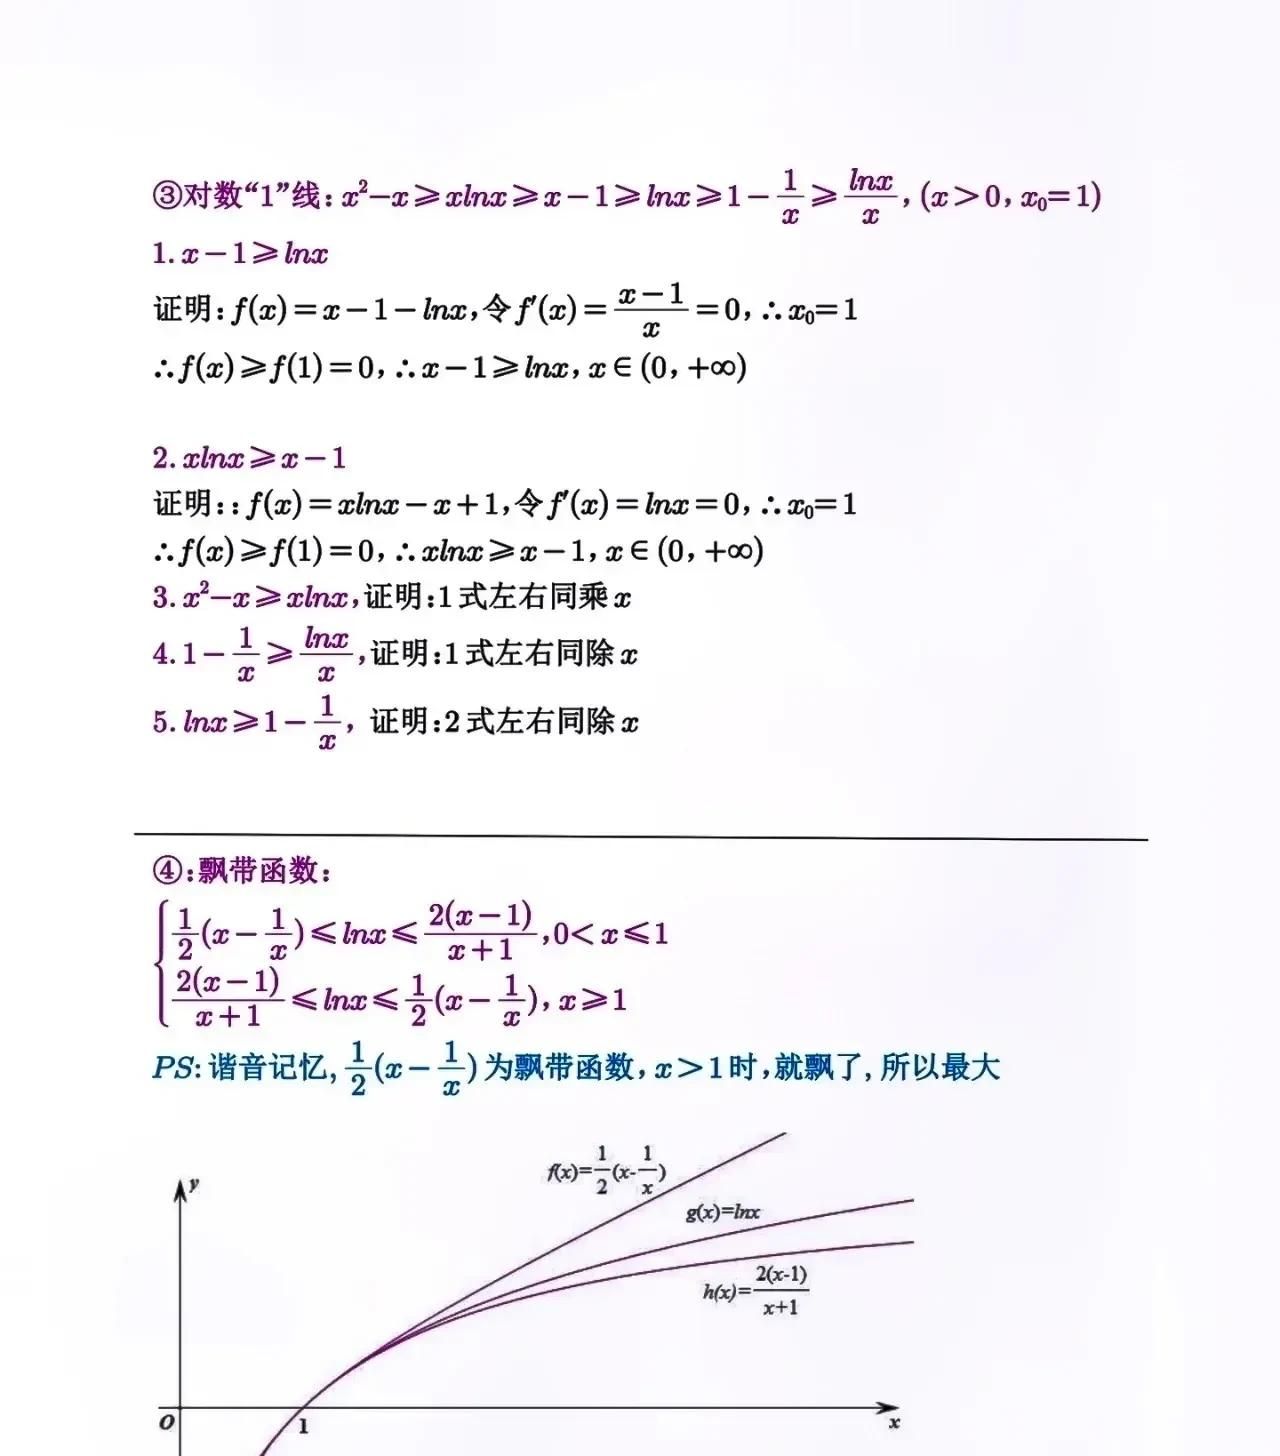 ③对数“1”线：x²−x⩾xlnx⩾x−1⩾lnx⩾1−1/x⩾lnx/x，(x>0, x₀=1)
1. x−1⩾lnx
证明：f(x)=x−1−lnx,令f′(x)=(x−1)/x=0, ∴x₀=1
∴f(x)⩾f(1)=0, ∴x−1⩾lnx, x∈(0, +∞)
2. xlnx⩾x−1
证明：: f(x)=xlnx−x+1,令f′(x)=lnx=0, ∴x₀=1
∴f(x)⩾f(1)=0, ∴xlnx⩾x−1, x∈(0, +∞)
3. x²−x⩾xlnx,证明:1式左右同乘x
4. 1−1/x⩾lnx/x,证明:1式左右同除x
5. lnx⩾1−1/x, 证明:2式左右同除x
④:飘带函数:
1/2(x−1/x)⩽lnx⩽2(x−1)/(x+1),0<x⩽1
2(x−1)/(x+1)⩽lnx⩽1/2(x−1/x), x⩾1
PS: 谐音记忆, 1/2(x−1/x)为飘带函数, x>1时,就飘了, 所以最大
f(x)=1/2(x-1/x)
y
g(x)=lnx
h(x)=2(x-1)/(x+1)
O
1
x